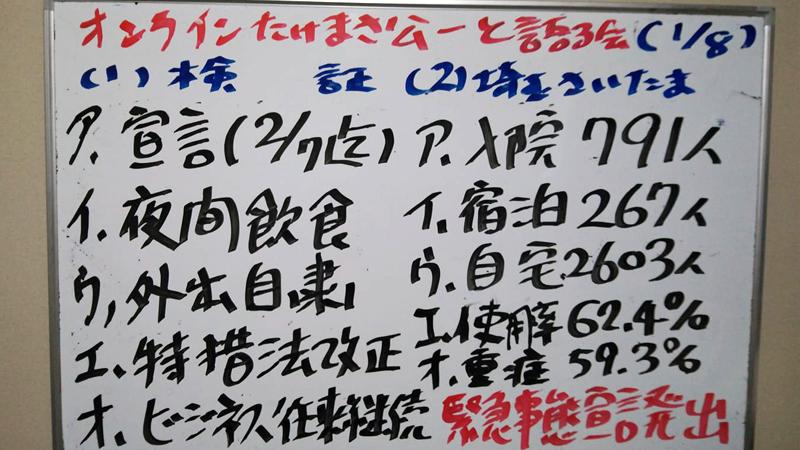 オンラインたけまさ公一と語る会(1/8)
(1)検 証 (2)埼玉さいたま
ア、宣言(2/7迄) ア、入院 791人
イ、夜間飲食 イ、宿泊 267人
ウ、外出自粛 ウ、自宅2603人
エ、特措法改正 エ、使用率 62.4%
オ、重症 59.3%
オ、ビジネス往来継続 緊急事態宣言発出